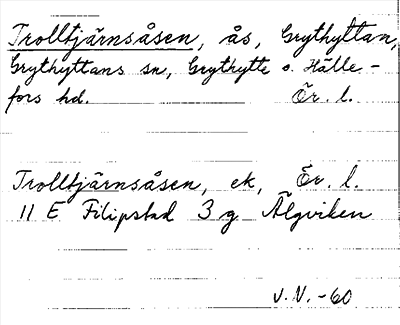 Trolltjärnsåsen, ås, Grythyttan,
Grythyttans sn, Grythytte o. Hälle-
fors hd. Ör. l.
Trolltjärnsåsen, ek, Ör. l.
11 E Filipstad 3 g Älgviken
J.V. -60